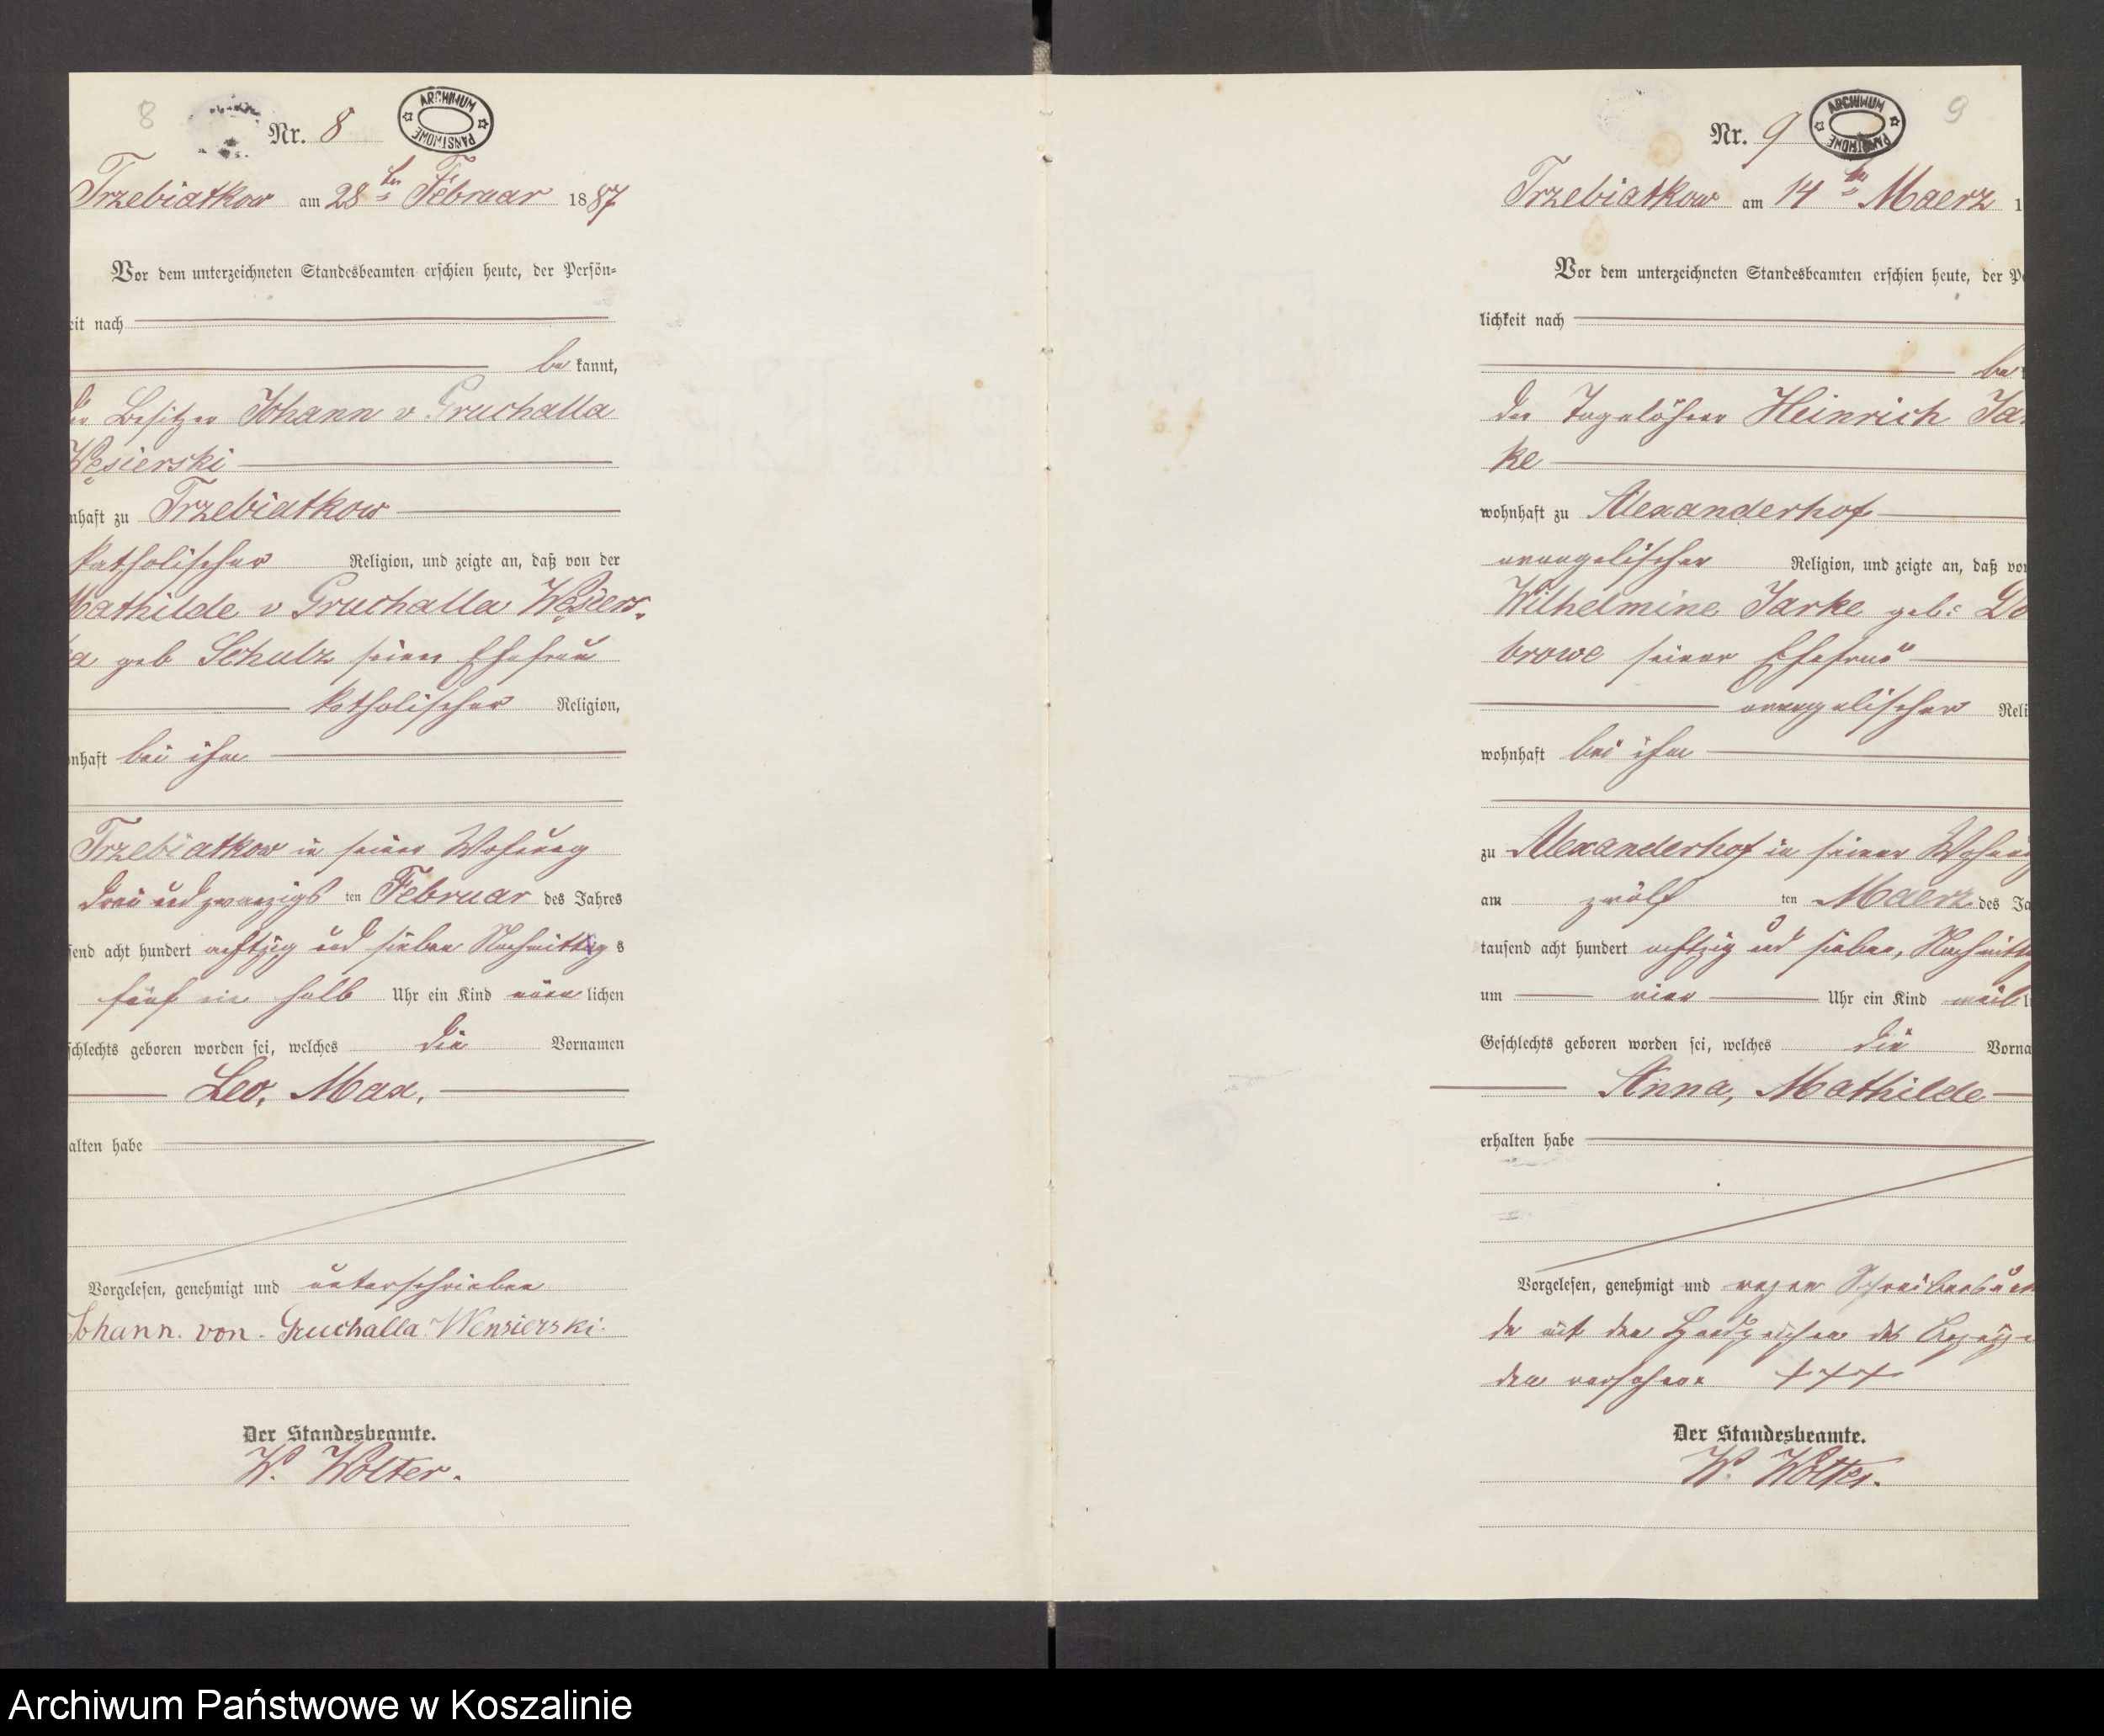 8
Nr. 8
ARCHIWUM PAŃSTWOWE
Trzebiatkow am 28ten Februar 1887
Vor dem unterzeichneten Standesbeamten erschien heute, der Persön=
eit nach
be kannt,
der Besitzer Johann v Gruchalla
Węsierski
nhaft zu Trzebiatkow
katholischer Religion, und zeigte an, daß von der
Mathilde v Gruchalla Węsiers-
ka geb Schulz seiner Ehefrau
katholischer Religion,
nhaft bei ihm
Trzebiatkow in seiner Wohnung
drei und zwanzigs ten Februar des Jahres
send acht hundert achtzig und sieben Nachmittag s
fünf ein halb Uhr ein Kind männ lichen
schlechts geboren worden sei, welches die Vornamen
Leo, Max,
alten habe
Vorgelesen, genehmigt und unterschrieben
Johann. von. Gruchalla Wensierski.
Der Standesbeamte.
W. Wolter.
9
Nr. 9
ARCHIWUM PAŃSTWOWE
Trzebiatkow am 14ten Maerz 1
Vor dem unterzeichneten Standesbeamten erschien heute, der Pe
lichkeit nach
be
der Tagelöhner Heinrich Jar
ke
wohnhaft zu Alexanderhof
evangelischer Religion, und zeigte an, daß von
Wilhelmine Jarke geb: Do
browe seiner Ehefrau
evangelischer Reli
wohnhaft bei ihm
zu Alexanderhof in seiner Wohnung
am zwölf ten Maerz des Ja
tausend acht hundert achtzig und sieben, Nachmitta
um vier Uhr ein Kind weib li
Geschlechts geboren worden sei, welches die Vorna
Anna, Mathilde
erhalten habe
Vorgelesen, genehmigt und wegen Schreibensun
de mit den Handzeichen des Anzeigen
den versehen. +++
Der Standesbeamte.
W. Wolter.
Archiwum Państwowe w Koszalinie